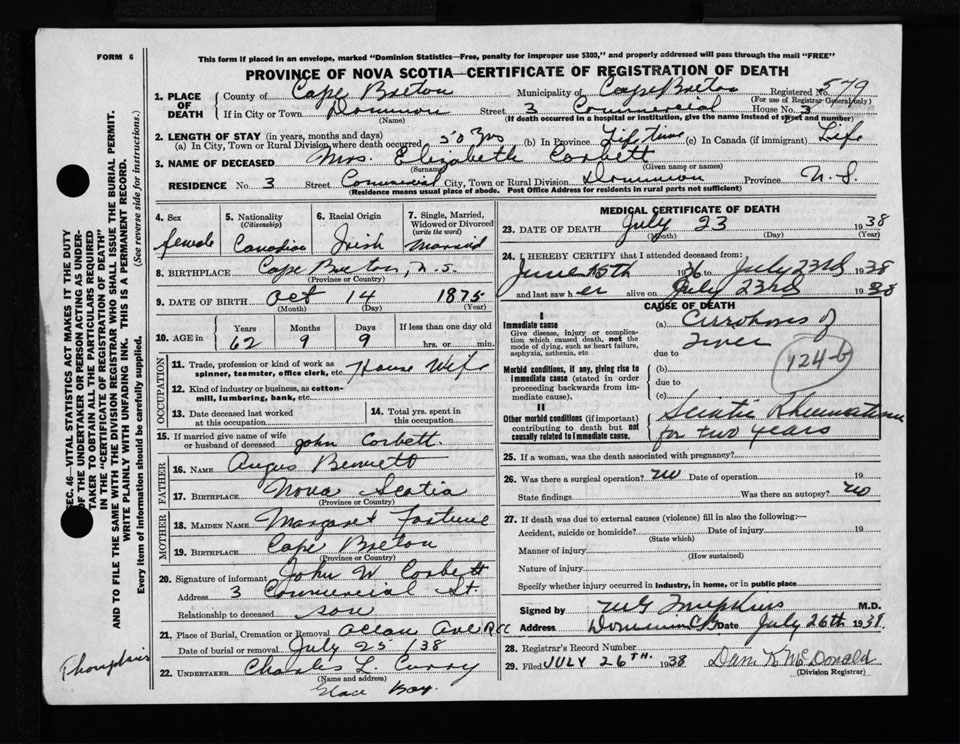 FORM 6
This form if placed in an envelope, marked "Dominion Statistics—Free, penalty for improper use $300," and properly addressed will pass through the mail "FREE"
PROVINCE OF NOVA SCOTIA—CERTIFICATE OF REGISTRATION OF DEATH
1. PLACE OF DEATH
County of Cape Breton Municipality of Cape Breton Registered No. 579
(For use of Registrar General only)
If in City or Town Dominion Street 3 Commercial House No. 3
(Name) (If death occurred in a hospital or institution, give the name instead of street and number)
2. LENGTH OF STAY (in years, months and days)
(a) In City, Town or Rural Division where death occurred 50 yrs (b) In Province Life time (c) In Canada (if immigrant) Life
3. NAME OF DECEASED Mrs. Elizabeth Corbett
(Surname) (Given name or names)
RESIDENCE No. 3 Street Commercial City, Town or Rural Division Dominion Province N.S.
(Residence means usual place of abode. Post Office Address for residents in rural parts not sufficient)
4. Sex female
5. Nationality (Citizenship) Canadian
6. Racial Origin Irish
7. Single, Married, Widowed or Divorced (write the word) Married
8. BIRTHPLACE Cape Breton, N.S.
(Province or Country)
9. DATE OF BIRTH Oct 14 1875
(Month) (Day) (Year)
10. AGE in Years Months Days If less than one day old
62 9 9 hrs. or min.
OCCUPATION
11. Trade, profession or kind of work as spinner, teamster, office clerk, etc. House Wife
12. Kind of industry or business, as cotton-mill, lumbering, bank, etc.
13. Date deceased last worked at this occupation
14. Total yrs. spent in this occupation
15. If married give name of wife or husband of deceased John Corbett
FATHER
16. NAME Angus Bennett
17. BIRTHPLACE Nova Scotia
(Province or Country)
MOTHER
18. MAIDEN NAME Margaret Fortune
19. BIRTHPLACE Cape Breton
(Province or Country)
20. Signature of informant John W Corbett
Address 3 Commercial St.
Relationship to deceased son
21. Place of Burial, Cremation or Removal Ocean Ave RCC
Date of burial or removal July 25 / 38
22. UNDERTAKER Charles L. Curry
(Name and address) Glace Bay.
MEDICAL CERTIFICATE OF DEATH
23. DATE OF DEATH July 23 1938
(Month) (Day) (Year)
24. I HEREBY CERTIFY that I attended deceased from:
June 15th 1936 to July 23rd 1938
and last saw her alive on July 23rd 1938
CAUSE OF DEATH
I
Immediate cause
Give disease, injury or complication which caused death, not the mode of dying, such as heart failure, asphyxia, asthenia, etc
(a) Cirrohoses of liver
due to
124-b
Morbid conditions, if any, giving rise to immediate cause (stated in order proceeding backwards from immediate cause).
(b)
due to
(c)
II
Other morbid conditions (if important) contributing to death but not causally related to immediate cause.
Sciatic Rheumatism
for two years
25. If a woman, was the death associated with pregnancy?
26. Was there a surgical operation? no Date of operation 19
State findings Was there an autopsy? no
27. If death was due to external causes (violence) fill in also the following:—
Accident, suicide or homicide? Date of injury 19
(State which)
Manner of injury
(How sustained)
Nature of injury
Specify whether injury occurred in industry, in home, or in public place
Signed by MG Tompkins M.D.
Address Dominion CB Date July 26th 1938.
28. Registrar's Record Number
29. Filed JULY 26TH. 1938 Dan K McDonald
(Division Registrar)
SEC. 46—VITAL STATISTICS ACT MAKES IT THE DUTY OF THE UNDERTAKER OR PERSON ACTING AS UNDERTAKER TO OBTAIN ALL THE PARTICULARS REQUIRED IN THE "CERTIFICATE OF REGISTRATION OF DEATH" AND TO FILE THE SAME WITH THE DIVISION REGISTRAR WHO SHALL ISSUE THE BURIAL PERMIT.
WRITE PLAINLY WITH UNFADING INK. THIS IS A PERMANENT RECORD.
Every item of information should be carefully supplied. (See reverse side for instructions.)